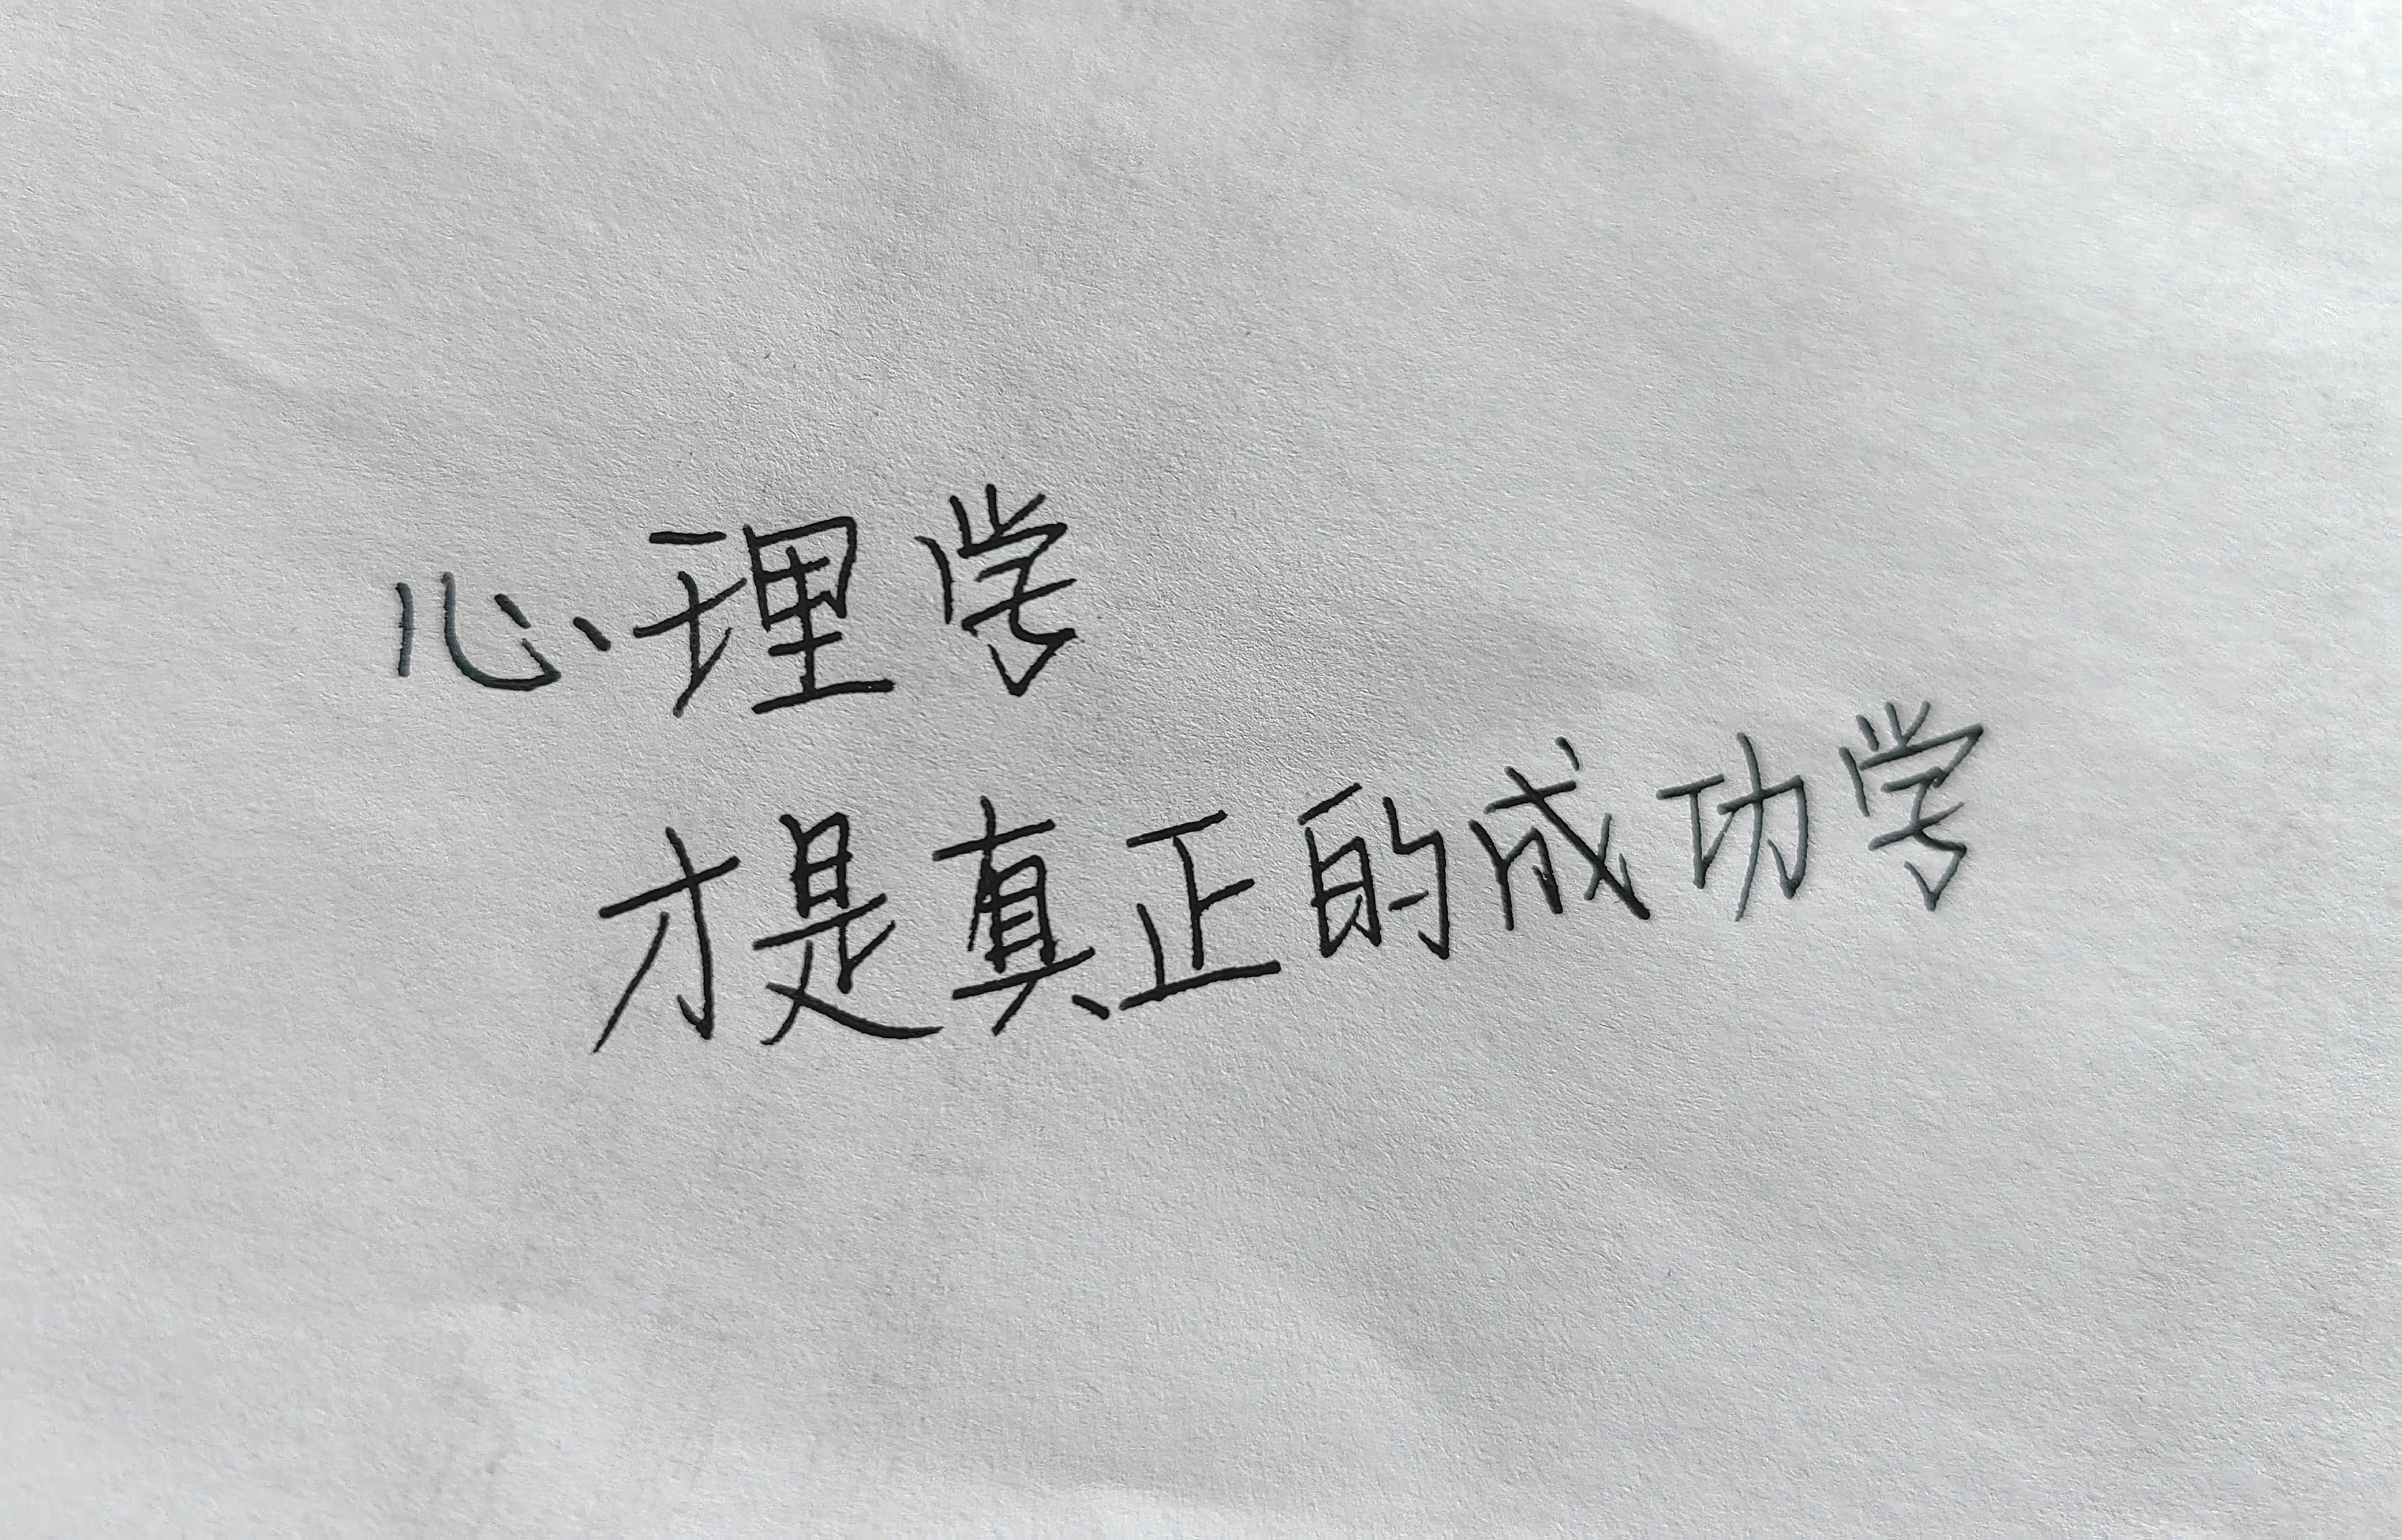 心理学
才是真正的成功学